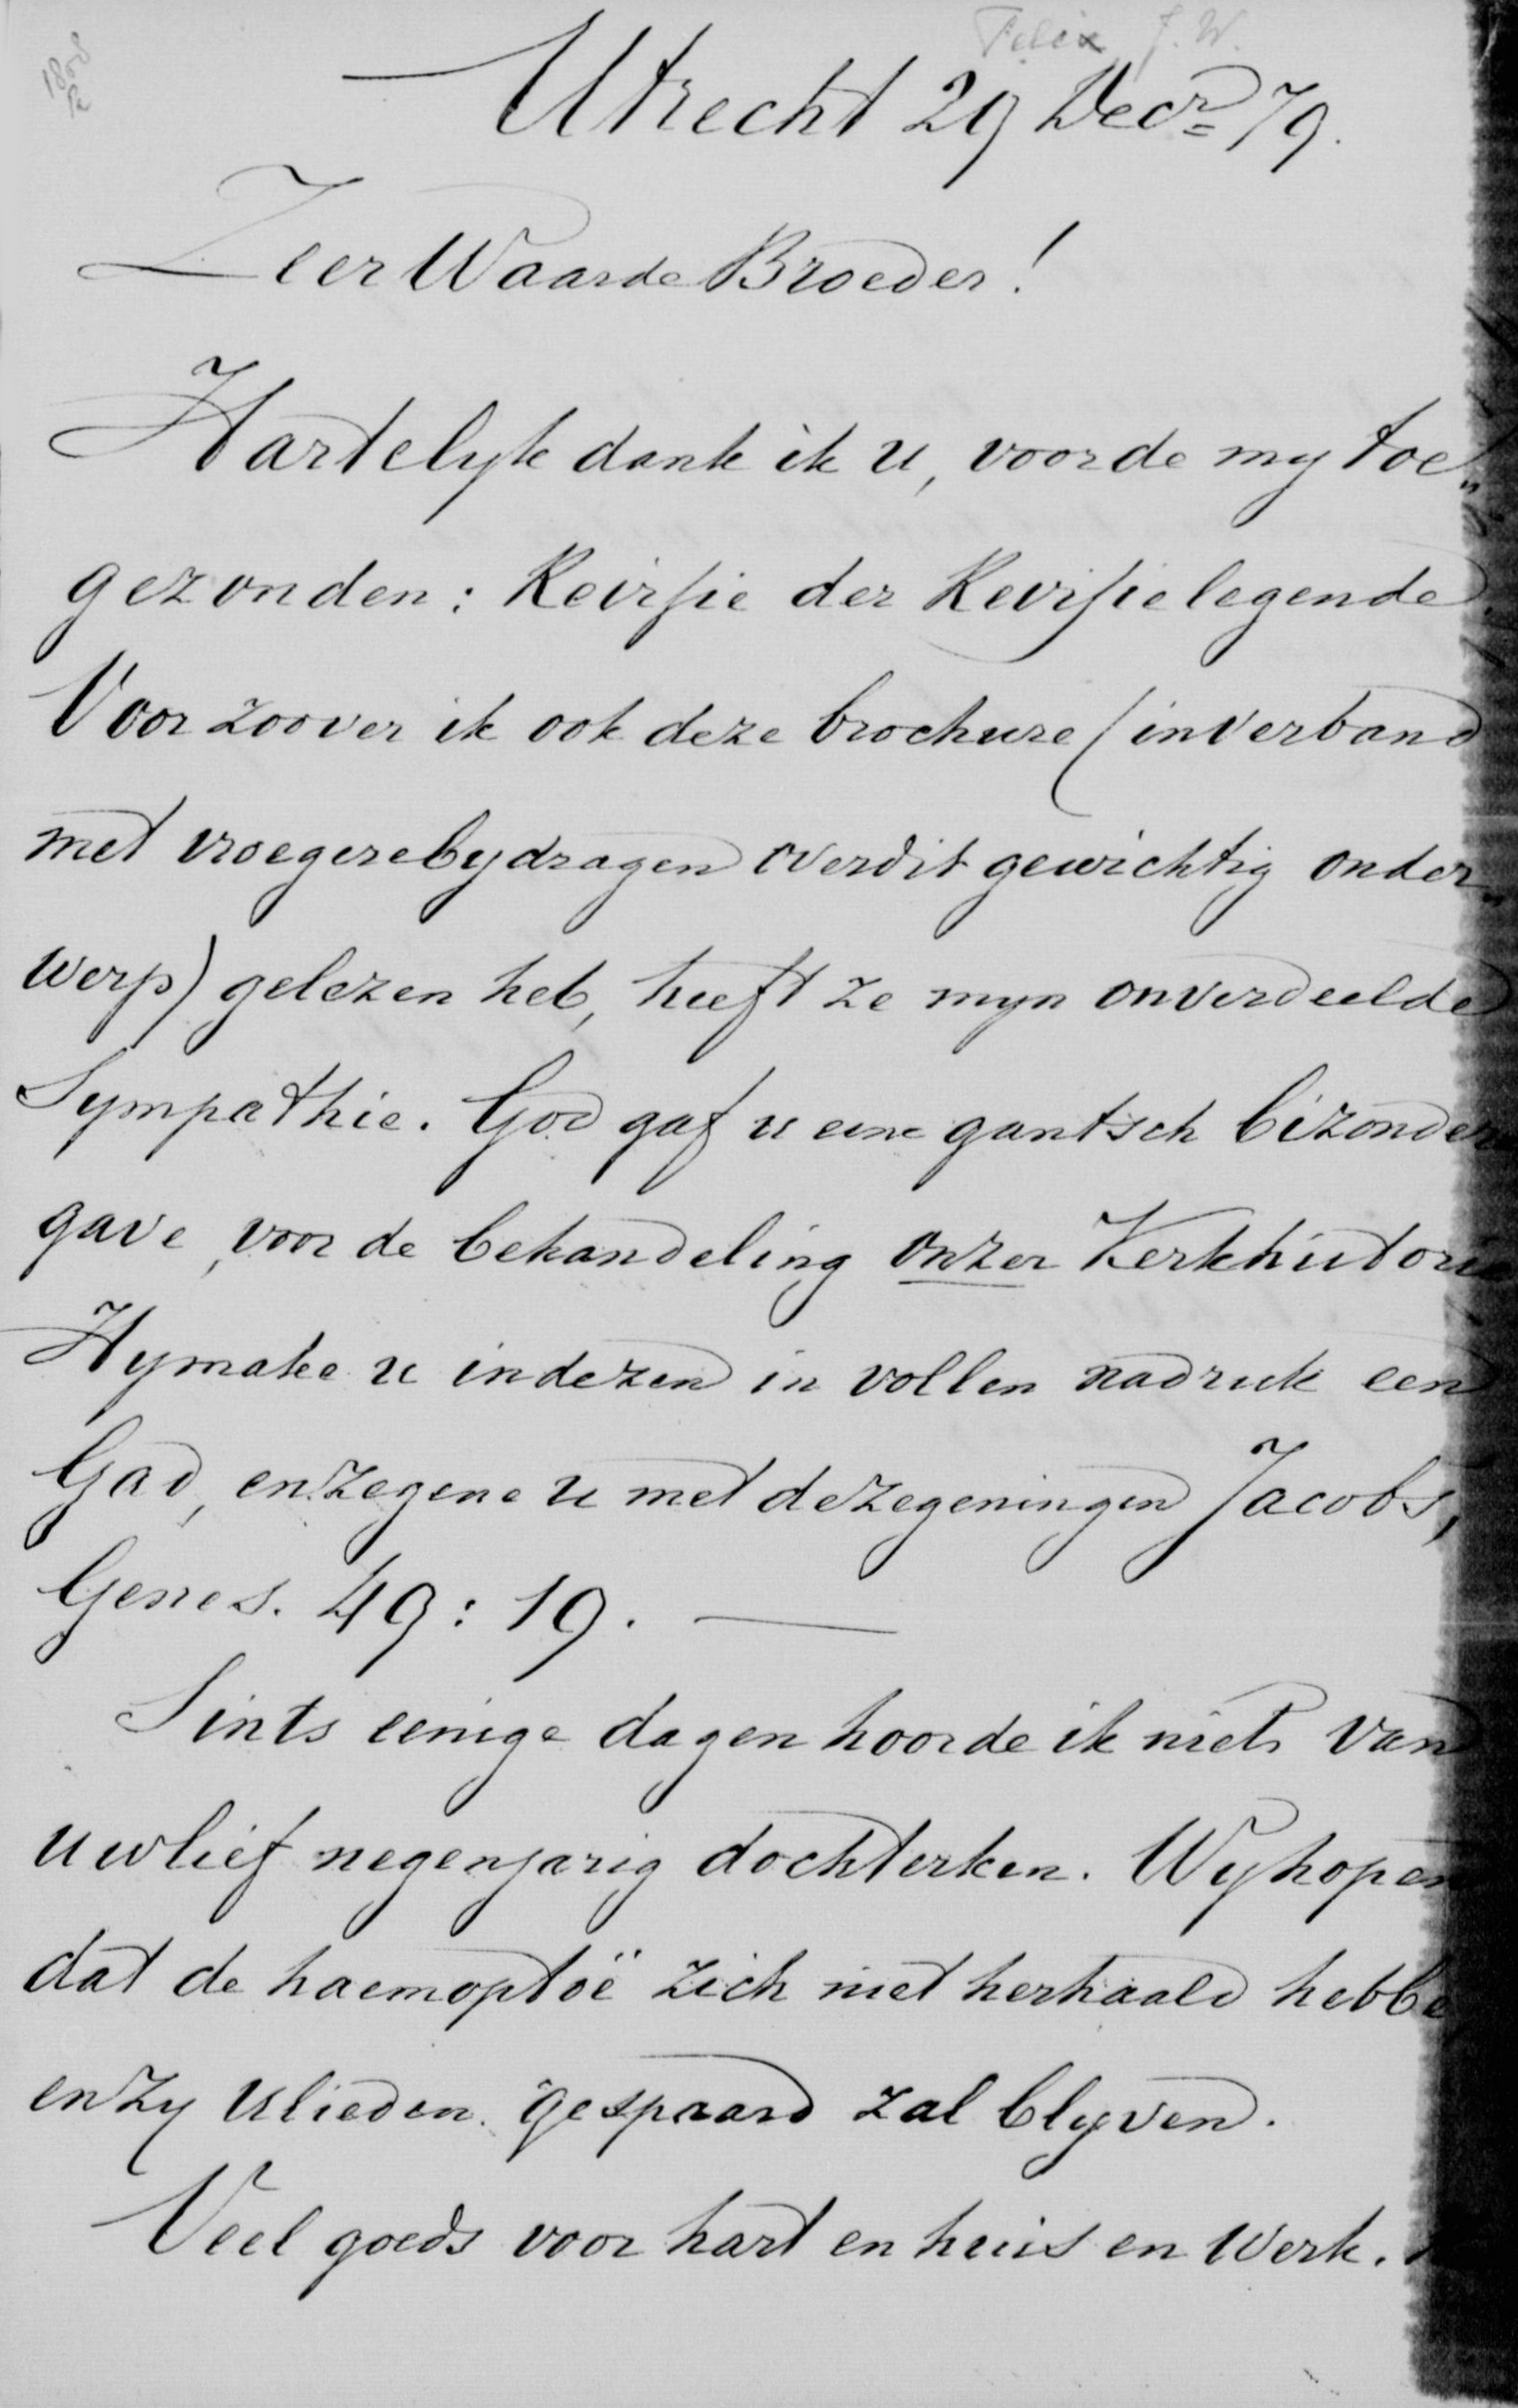 Felix J. W.
Utrecht 29 Decr 79.
Zeer Waarde Broeder!
Hartelyk dank ik u, voor de my toe„
gezonden: Reivsie der Revisielegende.
Voor zoover ik ook deze brochure (in verband
met vroegere bydragen over dit gewichtig onder„
werp) gelezen heb, heeft ze myn onverdeelde
Sympathie. God gaf u eene gantsch bizondere
gave, voor de behandeling onzer Kerkhistorie
Hy make u in dezen in vollen nadruk een
Gad, en zegene u met de zegeningen Jacobs,
Genes. 49:19. —
Sints eenige dagen hoorde ik niets van
uw lief negenjarig dochterken. Wy hopen
dat de haemoptoë zich niet herhaald hebbe
en zy ulieden gespaard zal blyven.
Veel goeds voor hart en huis en werk.